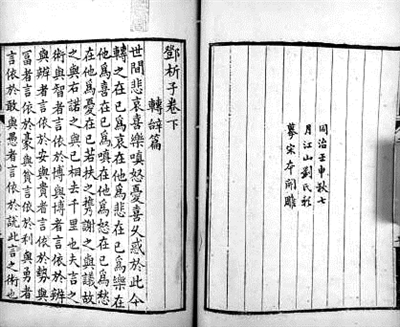 同治壬申秋七
月江山劉氏
摹宋本開雕
鄧析子卷下
轉辭篇
世間悲哀喜樂嗔怒憂喜久惑於此今
轉之在己為哀在他為悲在己為樂在
他為喜在己為嗔在他為怒在己為愁
在他為憂在己若扶之携謝之與議故
之與右諾之與已相去千里也夫言之
術與智者言依於博與博者言依於辨
與辨者言依於安與貴者言依於勢與
冨者言依於豪與貧言依於利與勇者
言依於敢與愚者言依於說此言之術也